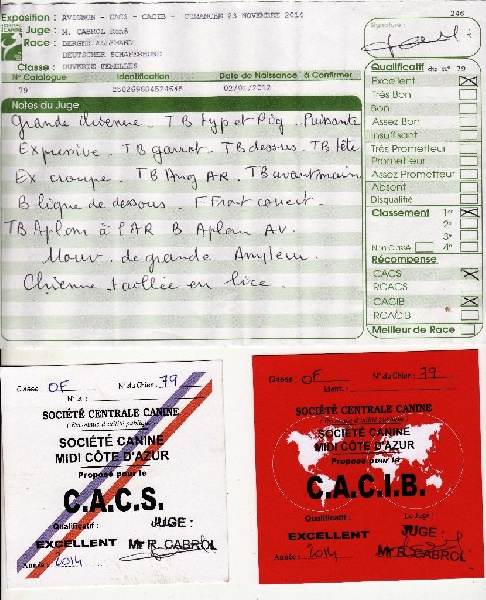 246
Exposition : AVIGNON - CACS - CACIB - DIMANCHE 23 NOVEMBRE 2014
Juge : M. CABROL René
Race : BERGER ALLEMAND
DEUTSCHER SCHÄFERHUND
Classe : OUVERTE FEMELLES
N° Catalogue Identification Date de Naissance à Confirmer
79 250269604524645 02/01/2012
Signature :
Notes du Juge
Grande chienne. TB typ et Pig. Puissante
Expressive. TB garrot. TB dessus. TB tête
Ex croupe. TB Ang AR. TB avant main
B ligne de dessous. F Fort couvert.
TB Aplom à l'AR B Aplom AV.
Mouv. de grande Ampleur.
Chienne taillée en lice.
Qualificatif du n° 79
Excellent
Très Bon
Bon
Assez Bon
Insuffisant
Très Prometteur
Prometteur
Assez Prometteur
Absent
Disqualité
Classement 1er
2e
3e
Non Classé 4e
Récompense
CACS
RCACS
CACIB
RCACIB
Meilleur de Race
Classe : OF N° du Chien : 79
SOCIÉTÉ CENTRALE CANINE
(Reconnue d'utilité publique)
SOCIÉTÉ CANINE
MIDI CÔTE D'AZUR
Proposé pour le
C.A.C.S.
Qualificatif : JUGE :
EXCELLENT Mr R. CABROL
Année : 2014
Classe : OF N° du Chien : 79
Ident. :
SOCIÉTÉ CENTRALE CANINE
(Reconnue d'utilité publique)
SOCIÉTÉ CANINE
MIDI CÔTE D'AZUR
Proposé pour le
C.A.C.I.B.
Qualificatif : Le Juge :
JUGE :
EXCELLENT Mr R. CABROL
Année : 2014